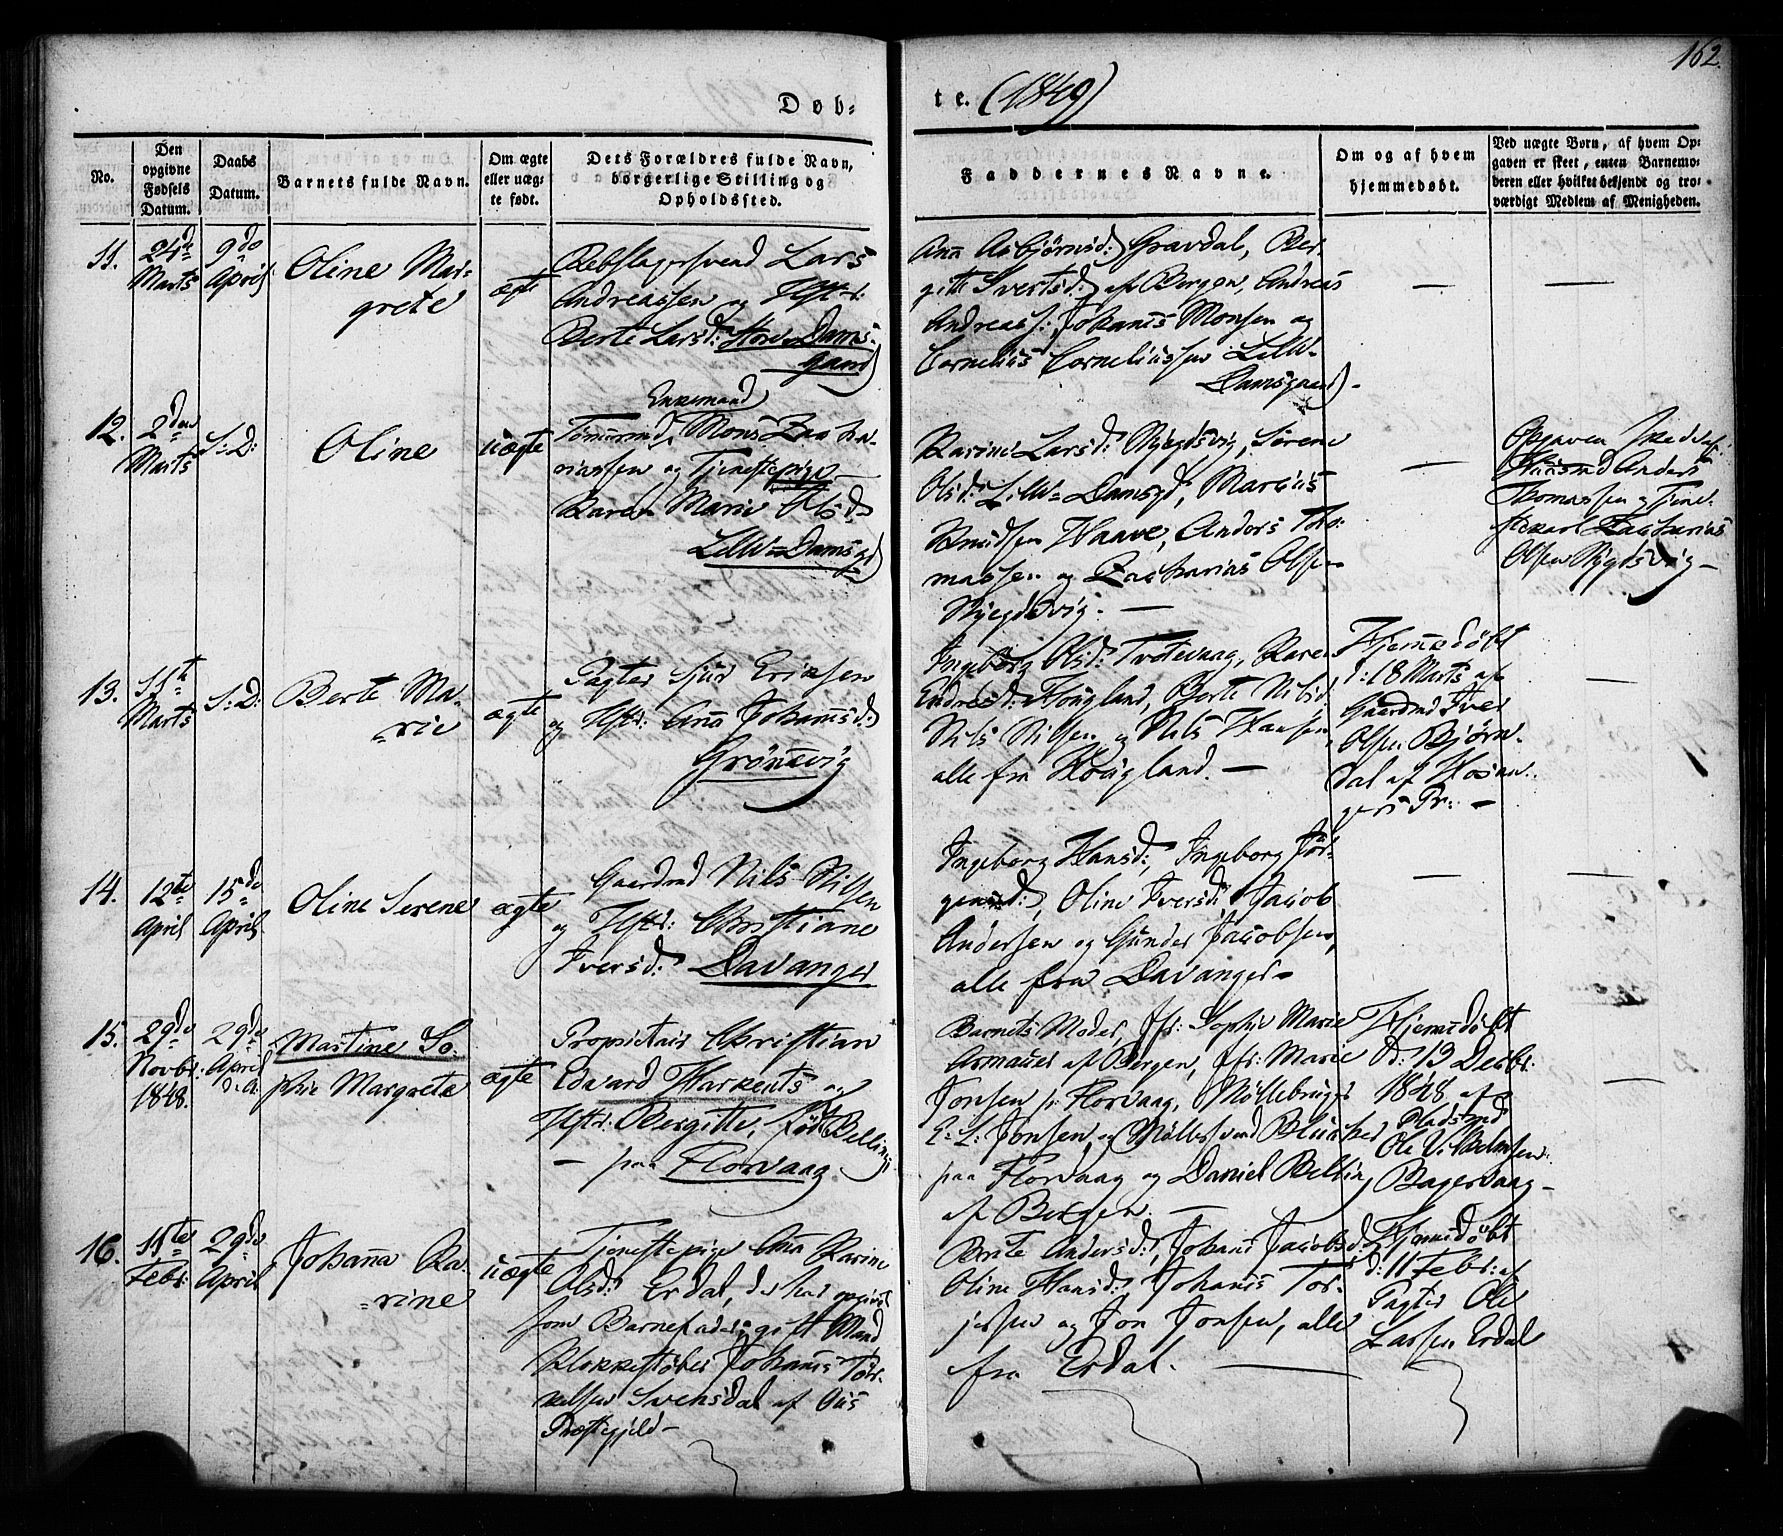 162.
Døb-
te. (1849)
No.
Den opgivne Fødsels Datum.
Daabs Datum.
Barnets fulde Navn.
Om ægte eller uægte født.
Dets Forældres fulde Navn, borgerlige Stilling og Opholdssted.
Faddernes Navne.
Om og af hvem hjemmedøbt.
Ved uægte Børn, af hvem Opgaven er skeet, enten Barnemoderen eller hvilket bekjendt og troværdigt Medlem af Menigheden.
11.
24de
Marts
9de
April
Oline Mar-
grete
ægte
Rebslagersvend Lars
Andreassen og Hstr:
Berte Larsd: Store Dams-
gaard
Ana Asbjørnsd: Gravdal, Ber-
gitte Ivertsd: af Bergen, Andreas
Andreass: Johanes Monsen og
Cornelius Corneliussen Lille-
Damsgaard -
—
—
12.
2den
Marts
S: D:
Oline
uægte
Enkemand
Tomtmd, Mons Zacha-
riassen og Tjenestepige
Karen Marie Olsd
Lille-Damsgd
Karine Larsd: Nygdsvig, Serene
Olsd: Lille-Damsgd, Marcus
Knudsen Haave, Anders Tho-
massen og Zacharias Olsen
Nygdsvig. —
—
Opgaven skedd af
Huusmd Anders
Thomassen og Tjene-
stekarl Zacharias
Olsen Nygdsvig -
13.
11te
Marts
S: D:
Berte Ma-
rie
ægte
Pagter Sjur Eriksen
og Hstr: Ana Johansd:
Grønevig
Ingeborg Olsd: Tvetevaag, Karen
Andersd: Hougland, Berte Nilsd:
Nils Nilsen og Nils Hansen,
alle fra Hougland. —
Hjemedøbt
d: 18 Marts af
Gaardmd Iver
Olsen Bjørn-
dal af Hosan-
gers Pr: -
—
14.
12te
April
15de
April
Oline Serene
ægte
Gaardmd Nils Nilsen
og Hstr: Christiane
Iversd: Davanger
Ingeborg Hansd:, Ingeborg Jør-
gensd:, Oline Iversd: Jacob
Andersen og Gunder Jacobsen,
alle fra Davanger -
—
—
15.
29de
Novbr:
1848.
29de
April
Martine So-
phie Margreta
ægte
Proprietair Christian
Edvard Harkents og
Hstr: Bergitte, født Belling
- paa Florvaag
Barnets Moder, Jfr: Sophie Marie
Armauer af Bergen, Jfr: Marie
Jonsen p: Florvaag, Møllebruger
E: L: Jonsen, og Møllersvend
paa Florvaag og Daniel Belling
af Bergen. —
Hjemedøbt
d: 13 Decbr:
1848, af
Pladsmd
Ole Vilhelmsen
Bagervaag -
—
16.
11te
Febr:
29de
April
Johana Ka-
rine
uægte
Tjenestepige Ana Karine
Olsd: Erdal, der har opgivet
som Barnefader: gift Mand
Klokkestøber Johanes Tor-
kelsen Svensdal af Aus
Præstegjeld -
Berte Andersd:, Johane Jacobsd:
Oline Hansd: Johanes Tor-
jersen og Jon Jonsen, alle
fra Erdal. —
Hjemedøbt
d: 11 Febr: af
Pagter Ole
Larsen Erdal